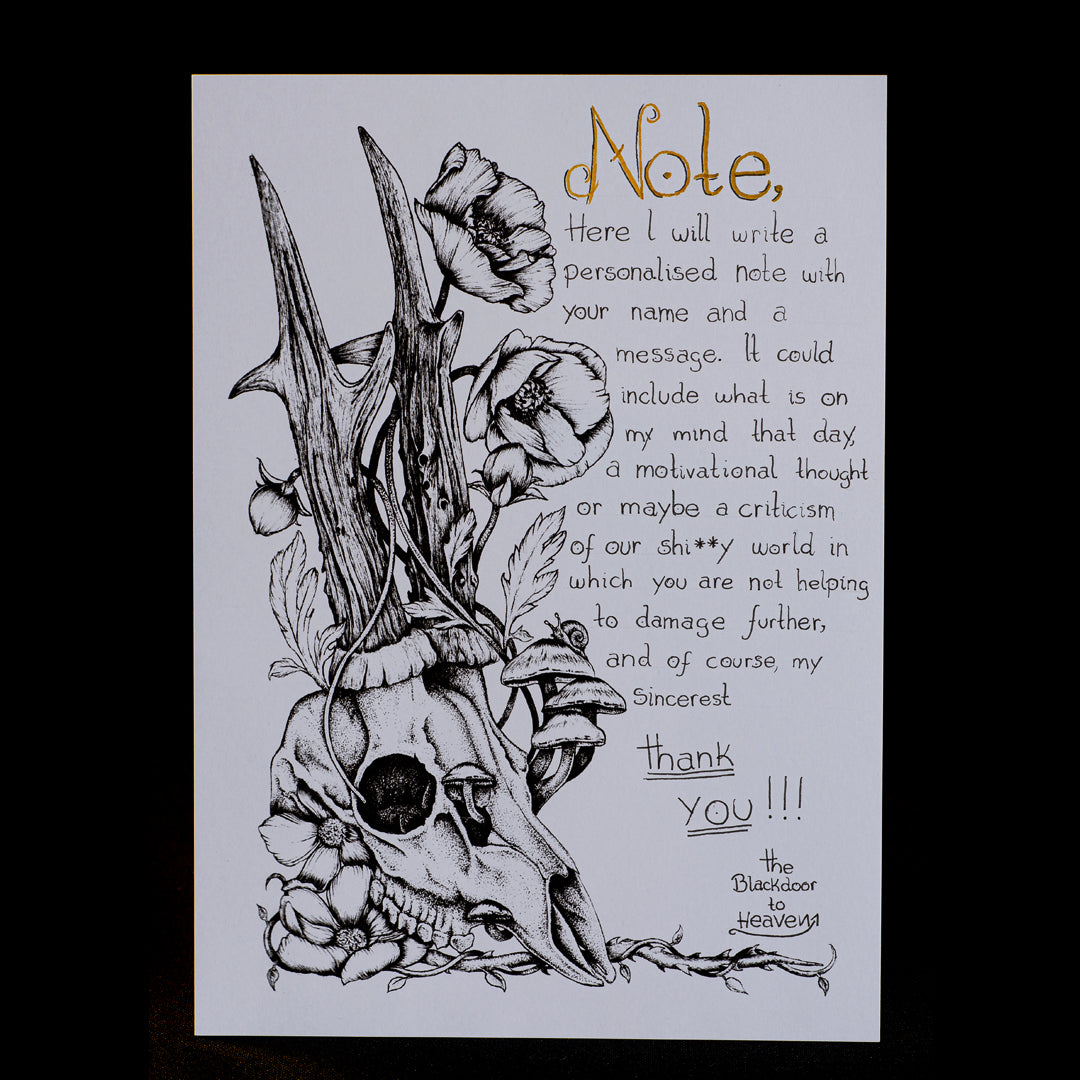 Note,
Here I will write a
personalised note with
your name and a
message. It could
include what is on
my mind that day,
a motivational thought
or maybe a criticism
of our shi**y world in
which you are not helping
to damage further,
and of course, my
sincerest
thank
you!!!
the
Blackdoor
to
Heaven